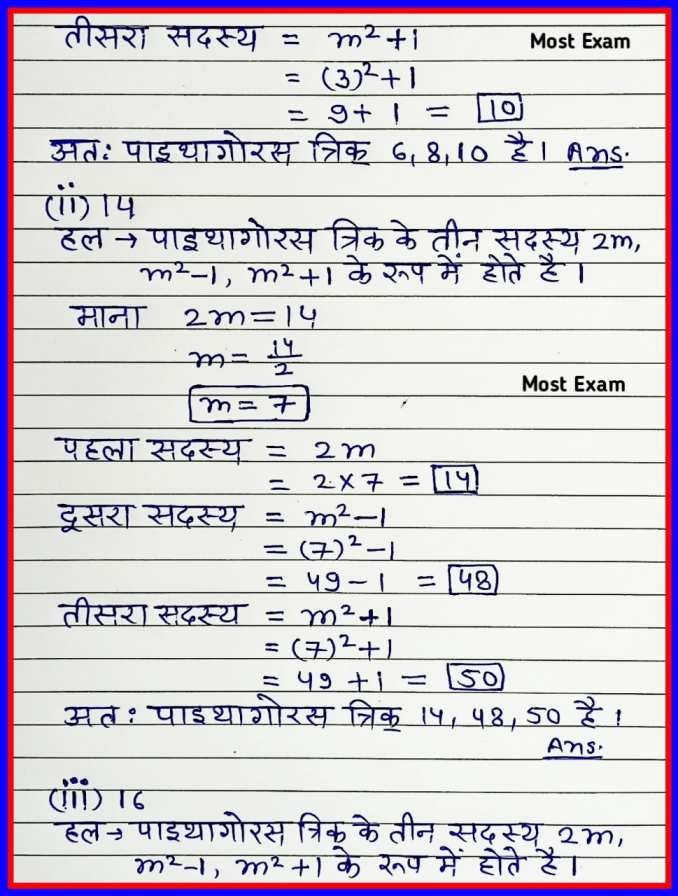 तीसरा सदस्य = m²+1 Most Exam
= (3)²+1
= 9+1 = 10
अतः पाइथागोरस त्रिक 6,8,10 है। Ans.
(ii) 14
हल → पाइथागोरस त्रिक के तीन सदस्य 2m,
m²-1, m²+1 के रूप में होते है।
माना 2m=14
m= 14/2
Most Exam
m=7
पहला सदस्य = 2m
= 2×7 = 14
दूसरा सदस्य = m²-1
= (7)²-1
= 49-1 = 48
तीसरा सदस्य = m²+1
= (7)²+1
= 49+1 = 50
अतः पाइथागोरस त्रिक 14, 48, 50 है।
Ans.
(iii) 16
हल → पाइथागोरस त्रिक के तीन सदस्य 2m,
m²-1, m²+1 के रूप में होते है।